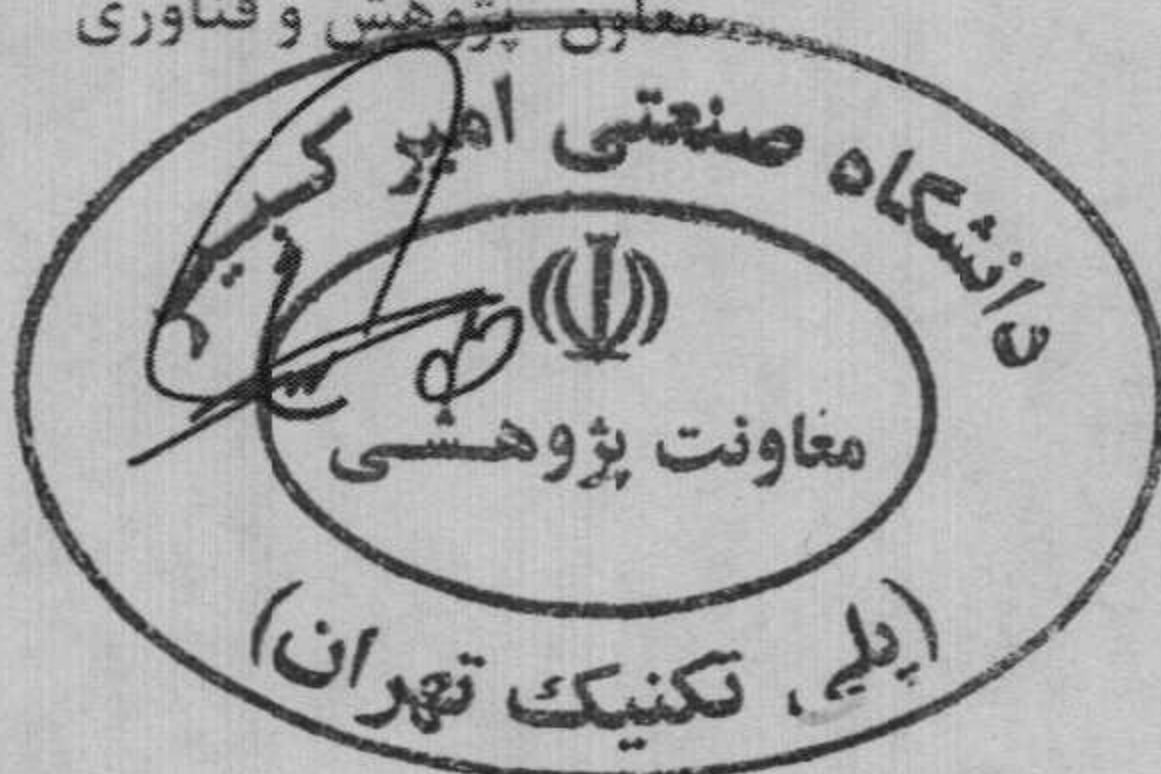 معاون پژوهش و فناوری
دانشگاه صنعتی امیر کبیر
معاونت پژوهشی
(پلی تکنیک تهران)